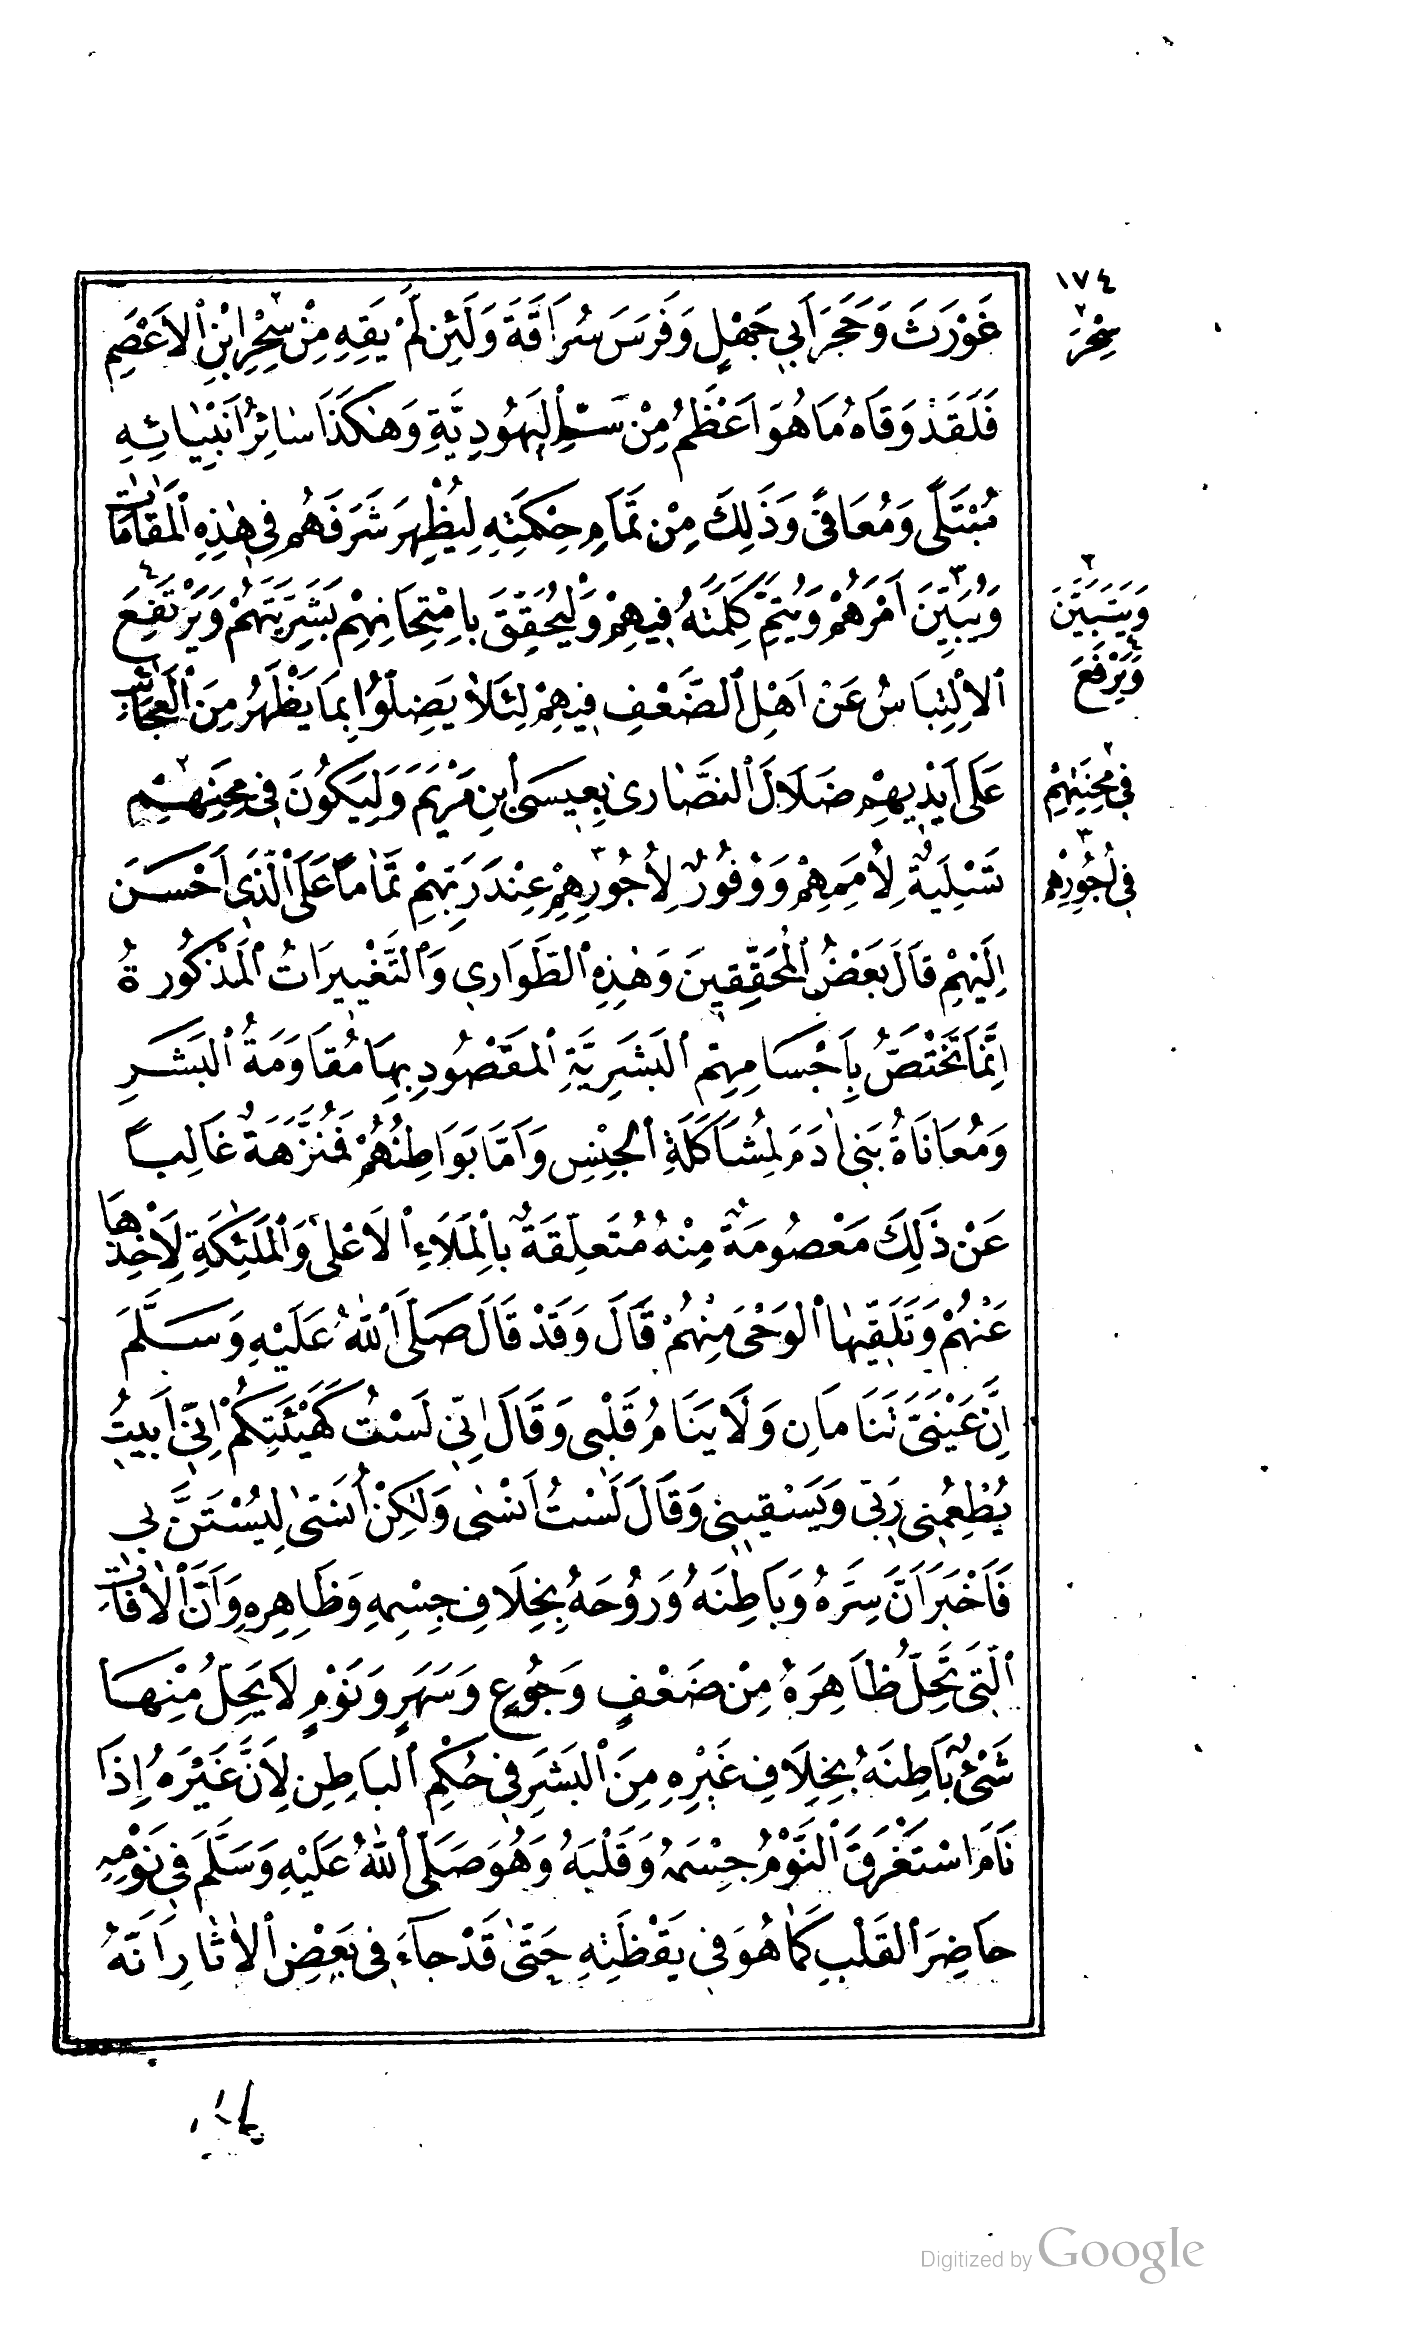 ١٧٤
غَوْرَثَ وَحَجَرَ اَبِي جَهْلٍ وَفَرَسَ سُرَاقَةَ وَلَئِن لَمْ يَقِهِ مِنْ سِحْرِ ابْنِ الْاَعْصَمِ
سِحْرَ
فَلَقَدْ وَقَاهُ مَا هُوَ اَعْظَمُ مِنْ سَمِّ الْيَهُودِيَّةِ وَهٰكَذَا سٰائِرُ اَنْبِيٰائِهِ
مُبْتَلًى وَمُعَافًى وَذَلِكَ مِنْ تَمَامِ حِكْمَتِهِ لِيُظْهِرَ شَرَفَهُمْ فِي هٰذِهِ الْمَقَامَاتِ
وَيُبَيِّنَ اَمْرَهُمْ وَيُتِمَّ كَلِمَتَهُ فِيهِمْ وَلْيُحَقِّقَ بِامْتِحَانِهِمْ بَشَرِيَّتَهُمْ وَيَرْتَفِعَ
وَيَتَبَيَّنَ
وَيَرْفَعَ
الْاِلْتِبَاسُ عَنْ اَهْلِ الضَّعْفِ فِيهِمْ لِئَلَّا يَضِلُّوا بِمَا يَظْهَرُ مِنَ الْعَجَائِبِ
عَلَى اَيْدِيهِمْ ضَلَالَ النَّصٰارى بِعِيسَى ابْنِ مَرْيَمَ وَلِيَكُونَ فِي مِحَنِهِمْ
فِي مِحْنَتِهِمْ
تَسْلِيَةٌ لِأُمَمِهِمْ وَوُفُورٌ لِأُجُورِهِمْ عِنْدَ رَبِّهِمْ تَمَامًا عَلَى الَّذِي اَحْسَنَ
فِي اُجُورِهِمْ
اِلَيْهِمْ قَالَ بَعْضُ الْمُحَقِّقِينَ وَهٰذِهِ الطَّوَارِي وَالتَّغْيِيرَاتُ الْمَذْكُورَةُ
اِنَّمَا تَخْتَصُّ بِاَجْسَامِهِمْ الْبَشَرِيَّةِ الْمَقْصُودِ بِهَا مُقَاوَمَةُ الْبَشَرِ
وَمُعَانَاةُ بَنِي اٰدَمَ لِمُشَاكَلَةِ الْجِنْسِ وَاَمَّا بَوَاطِنُهُمْ فَمُنَزَّهَةٌ غَالِبًا
عَنْ ذَلِكَ مَعْصُومَةٌ مِنْهُ مُتَعَلِّقَةٌ بِالْمَلَاءِ الْاَعْلٰى وَالْمَلٰئِكَةِ لِاَخْذِهَا
عَنْهُمْ وَتَلَقِّيهٰا الْوَحْىَ مِنْهُمْ قَالَ وَقَدْ قَالَ صَلَّى اللّٰهُ عَلَيْهِ وَسَلَّمَ
اِنَّ عَيْنَىَّ تَنَامَانِ وَلَا يَنَامُ قَلْبِي وَقَالَ اِنِّي لَسْتُ كَهَيْئَتِكُمْ اِنِّي اَبِيتُ
يُطْعِمُنِي رَبِّي وَيَسْقِينِي وَقَالَ لَسْتُ اَنْسٰى وَلٰكِنْ اُنَسّٰى لِيُسْتَنَّ بِي
فَاَخْبَرَ اَنَّ سِرَّهُ وَبَاطِنَهُ وَرُوحَهُ بِخِلَافِ جِسْمِهِ وَظَاهِرِهِ وَاَنَّ الْاٰفَاتِ
الَّتِي تَحِلُّ ظَاهِرَهُ مِنْ ضَعْفٍ وَجُوعٍ وَسَهَرٍ وَنَوْمٍ لَا يَحِلُّ مِنْهَا
شَيْئٌ بَاطِنَهُ بِخِلَافِ غَيْرِهِ مِنَ الْبَشَرِ فِي حُكْمِ الْبَاطِنِ لِاَنَّ غَيْرَهُ اِذَا
نَامَ اسْتَغْرَقَ النَّوْمُ جِسْمَهُ وَقَلْبَهُ وَهُوَ صَلَّى اللّٰهُ عَلَيْهِ وَسَلَّمَ فِي نَوْمِهِ
حَاضِرُ الْقَلْبِ كَمَا هُوَ فِي يَقْظَتِهِ حَتّٰى قَدْ جَآءَ فِي بَعْضِ الْاٰثٰارِ اَنَّهُ
Digitized by Google